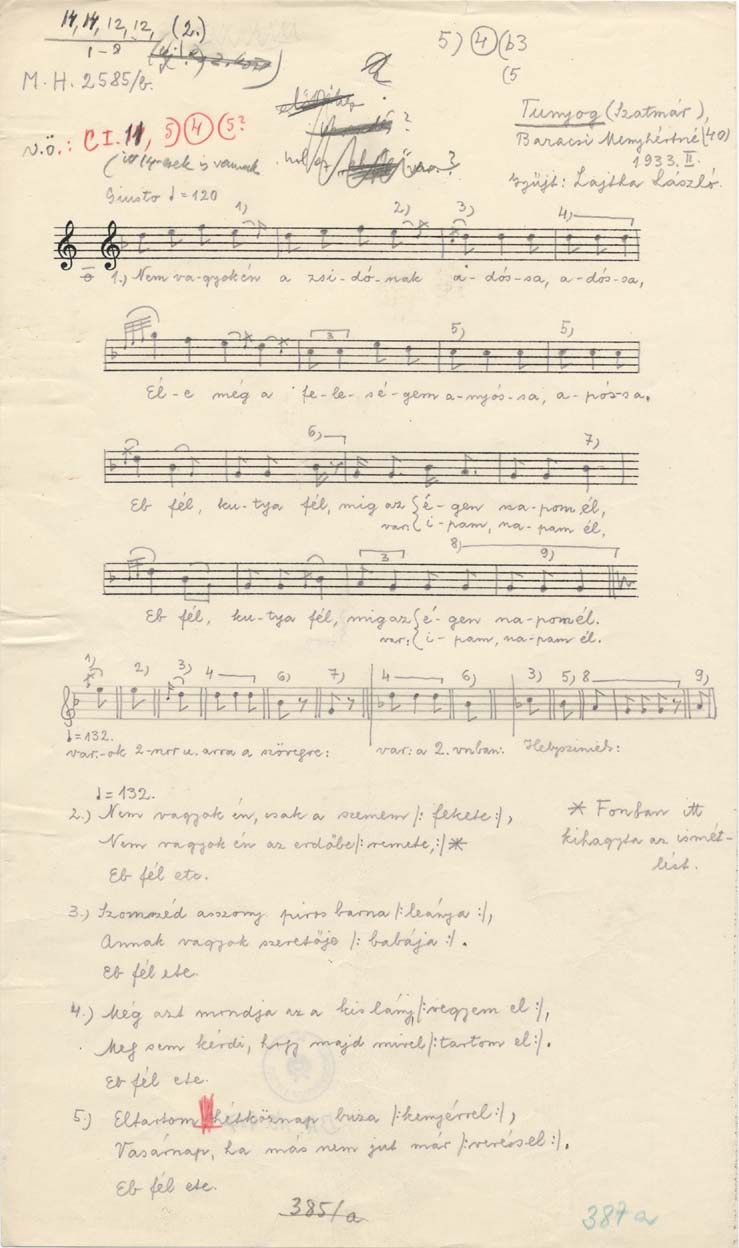 14, 14, 12, 12, (2.)
1-8
5) 4 (b3
(5
M. H. 2585/b.
Tunyog (Szatmár),
Barácsi Menyhértné (40)
1933. II.
Gyűjt: Lajtha László.
v.ö.: C I. 11, 5) 4 (5?
Giusto ♩=120
1) 2) 3) 4)
1.) Nem va-gyok én a zsi-dó-nak a-dós-sa, a-dós-sa,
3 5) 5)
Él-e még a fe-le-sé-gem a-nyós-sa, a-pós-sa.
6) 7)
Eb fél, ku-tya fél, mig az { é-gen na-pom él,
var: { i-pam, na-pam él,
3 8) 9)
Eb fél, ku-tya fél, mig az { é-gen na-pom él.
var: { i-pam, na-pam él.
1) 2) 3) 4 6) 7) 4 6) 3) 5) 8 9)
♩=132.
var.-ok 2-nrr u. arra a szövegre: var: a 2. vnban: Helyszinieh:
♩=132.
2.) Nem vagyok én, csak a szemem /: fekete :/,
Nem vagyok én az erdőbe /: remete, :/ *
Eb fél etc.
* Fonban itt
kihagyta az ismét-
lést.
3.) Szomszéd asszony piros barna /: leánya :/,
Annak vagyok szeretője /: babája :/.
Eb fél etc.
4.) Még azt mondja az a kis lány, /: vegyem el :/,
Meg sem kérdi, hogy majd mivel /: tartom el :/.
Eb fél etc.
5.) Eltartom hétköznap buza /: kenyérrel :/,
Vasárnap, ha más nem jut már /: veréssel :/.
Eb fél etc.
385/a
387a